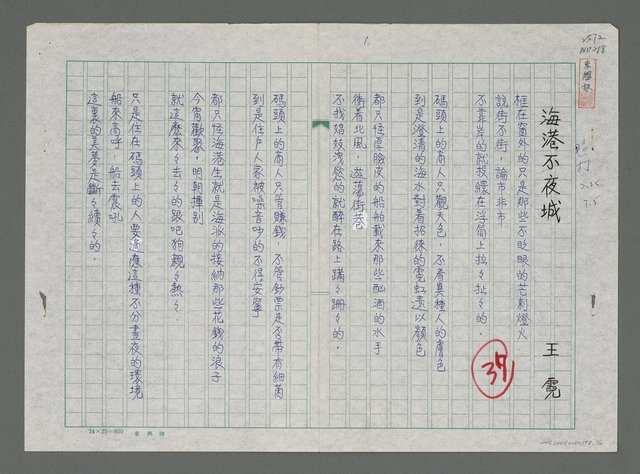 1.
v.572
NO 218
海港不夜城
王霓
框在窗外的只是那些不眨眼的芒刺燈火
說街不街，論市非市！
不靠岸的就技纜在浮筒上拉々扯々的。
碼頭上的商人只觀天色，不看異種人的膚色
到是澄清的海水對著招徠的霓虹還以顏色
都只怪厚臉皮的船舶載來那些酗酒的水手
衝着北風，遊蕩街巷
不找娼妓洩慾的就醉在路上蹣々跚々的。
碼頭上的商人只管賺錢，不管鈔票是否帶有細菌
到是住戶人家被噪音吵的不得安寧
都只怪海港生就是海派的接納那些花錢的浪子
今宵歡聚，明朝揮別
就這麼來々去々的跟吧狗親々熱々。
只是住在碼頭上的人要適應這種不分晝夜的環境
船來高呼，船去震吼
這裏的美夢是斷々續々的。
37
2.25
3.5
24×25=600